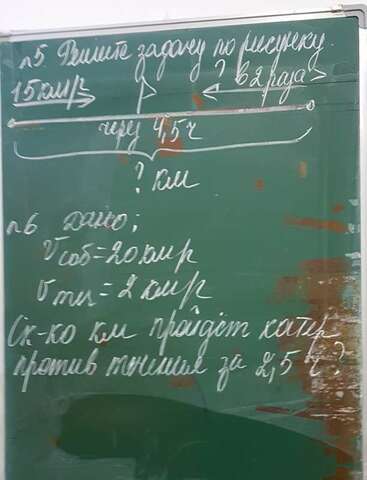 №5 Решите задачу по рисунку.
15 км/ч ? в 2 раза >
через 4,5 ч
? км
№6 Дано:
Vсоб = 20 км/ч
Vтеч = 2 км/ч
Ск-ко км пройдёт катер
против течения за 2,5 ч?